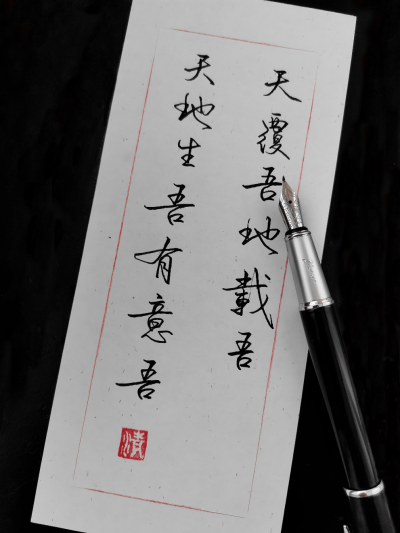 天覆吾地載吾
天地生吾有意吾